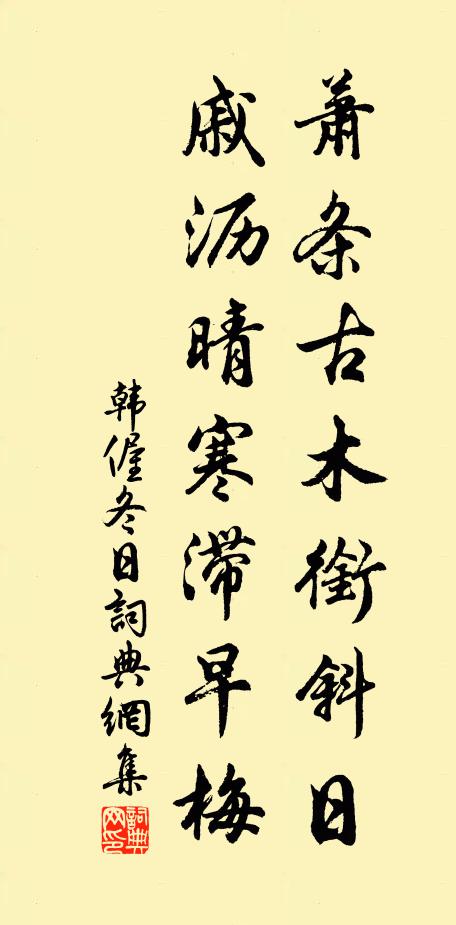 萧条古木銜斜日
戚沥晴寒滞早梅
韩偓冬日詞典網集
詞典网印